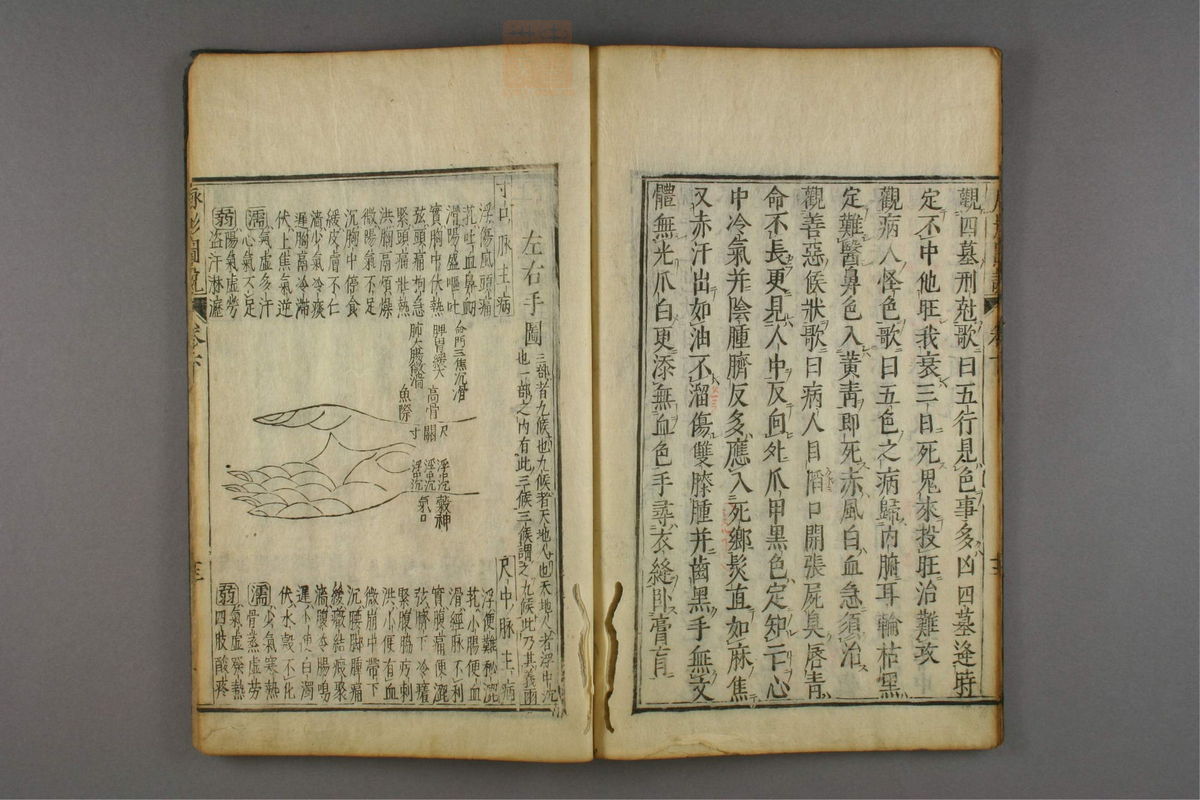 觀四墓刑尅歌曰五行見色事多凶四墓逢時
定不中他旺我衰三日死鬼來投旺治難攻
觀病人怪色歌曰五色之病歸內腑耳輪枯黑
定難醫鼻色入黃靑即死赤風白血急須治
觀善惡候狀歌曰病人目陷口開張屍臭唇靑
命不長更見人中反向外爪甲黑色定知亡心
中冷氣并陰腫臍反多應入死鄉髮直如麻焦
又赤汗出如油不溜傷雙膝腫并齒黑手無文
體無光爪白更添無血色手尋衣縫臥膏肓
左右手圖
三部者九候也九候者天地人也天地人者浮中沉
也一部之內有此三候三候謂之九候此乃其義
寸口脉主病
浮傷風頭痛
芤吐血鼻衄
滑陽盛嘔吐
實胸中伏熱
弦頭痛拘急
緊頭痛壯熱
洪胸膈煩燥
微陽氣不足
沉胸中停食
緩皮膚不仁
濇少氣冷痰
遲胸膈冷滯
伏上焦氣逆
濡氣虛多汗
心氣不足
弱陽氣虛勞
盜汗淋瀝
命門三焦沉滑
脾胃緩大
肺大腸微濇
高骨
魚際
尺
關
寸
浮中沉
浮中沉
浮中沉
穀神
氣口
尺中脉主病
浮便難秘澀
芤小腸便血
滑經脉不利
實腹痛便澀
弦臍下冷
緊腹脇疞刺
洪小便有血
微崩中帶下
沉腰脚脾痛
緩癥結瘕聚
濇腹冷腸鳴
遲小便白濁
伏水穀不化
濡少氣寒熱
骨蒸虛勞
弱氣虛發熱
四肢酸疼
脉影圖說